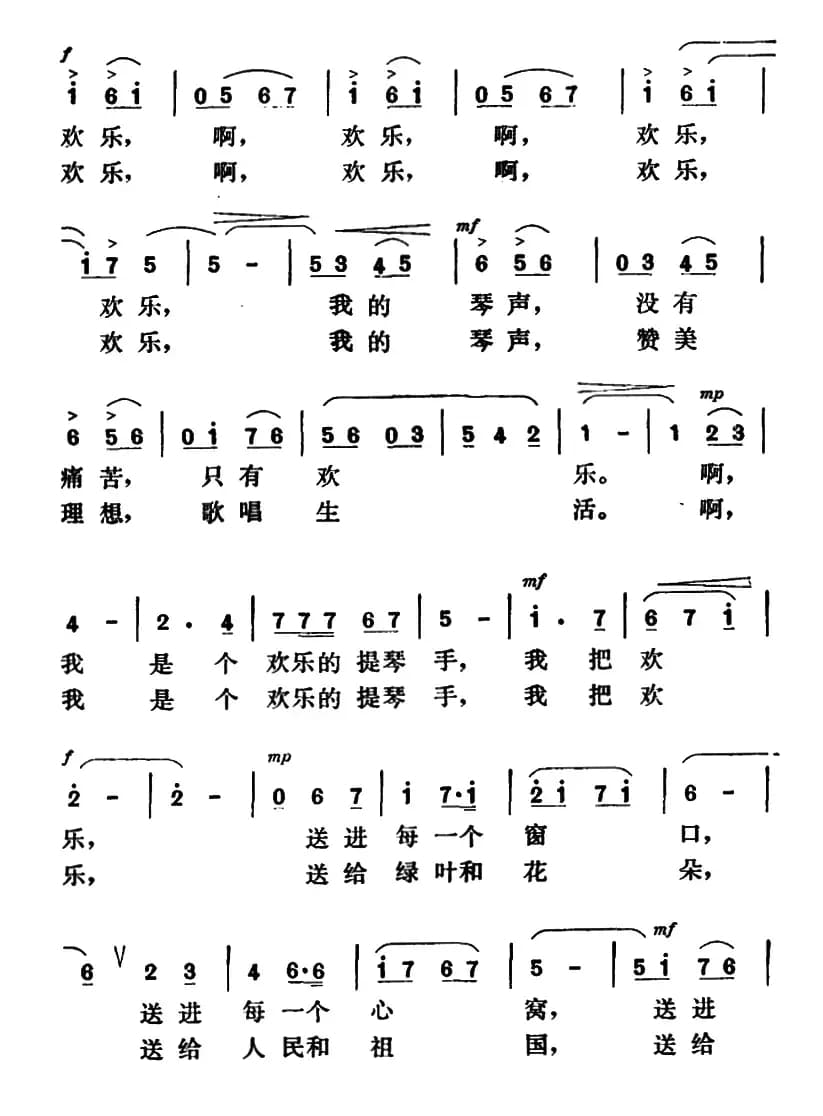 f
i 6 i | 0 5 6 7 | i 6 i | 0 5 6 7 | i 6 i |
欢 乐， 啊， 欢 乐， 啊， 欢 乐，
欢 乐， 啊， 欢 乐， 啊， 欢 乐，
mf
i 7 5 | 5 - | 5 3 4 5 | 6 5 6 | 0 3 4 5 |
欢 乐， 我 的 琴 声， 没 有
欢 乐， 我 的 琴 声， 赞 美
mp
6 5 6 | 0 i 7 6 | 5 6 0 3 | 5 4 2 | 1 - | 1 2 3 |
痛 苦， 只 有 欢 乐。 啊，
理 想， 歌 唱 生 活。 啊，
mf
4 - | 2 . 4 | 7 7 7 6 7 | 5 - | i . 7 | 6 7 i |
我 是 个 欢乐的 提琴 手， 我 把 欢
我 是 个 欢乐的 提琴 手， 我 把 欢
f mp
2 - | 2 - | 0 6 7 | i 7·i | 2 i 7 i | 6 - |
乐， 送 进 每 一个 窗 口，
乐， 送 给 绿 叶和 花 朵，
mf
6 V 2 3 | 4 6·6 | i 7 6 7 | 5 - | 5 i 7 6 |
送 进 每 一个 心 窝， 送 进
送 给 人 民和 祖 国， 送 给